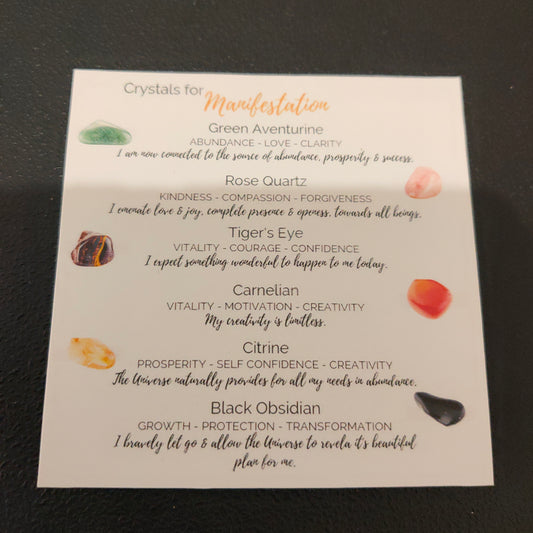 Crystals for
Manifestation
Green Aventurine
ABUNDANCE - LOVE - CLARITY
I am now connected to the source of abundance, prosperity & success.
Rose Quartz
KINDNESS - COMPASSION - FORGIVENESS
I emenate love & joy, complete presence & openess, towards all beings.
Tiger's Eye
VITALITY - COURAGE - CONFIDENCE
I expect something wonderful to happen to me today.
Carnelian
VITALITY - MOTIVATION - CREATIVITY
My creativity is limitless.
Citrine
PROSPERITY - SELF CONFIDENCE - CREATIVITY
The Universe naturally provides for all my needs in abundance.
Black Obsidian
GROWTH - PROTECTION - TRANSFORMATION
I bravely let go & allow the Universe to revela it's beautiful
plan for me.